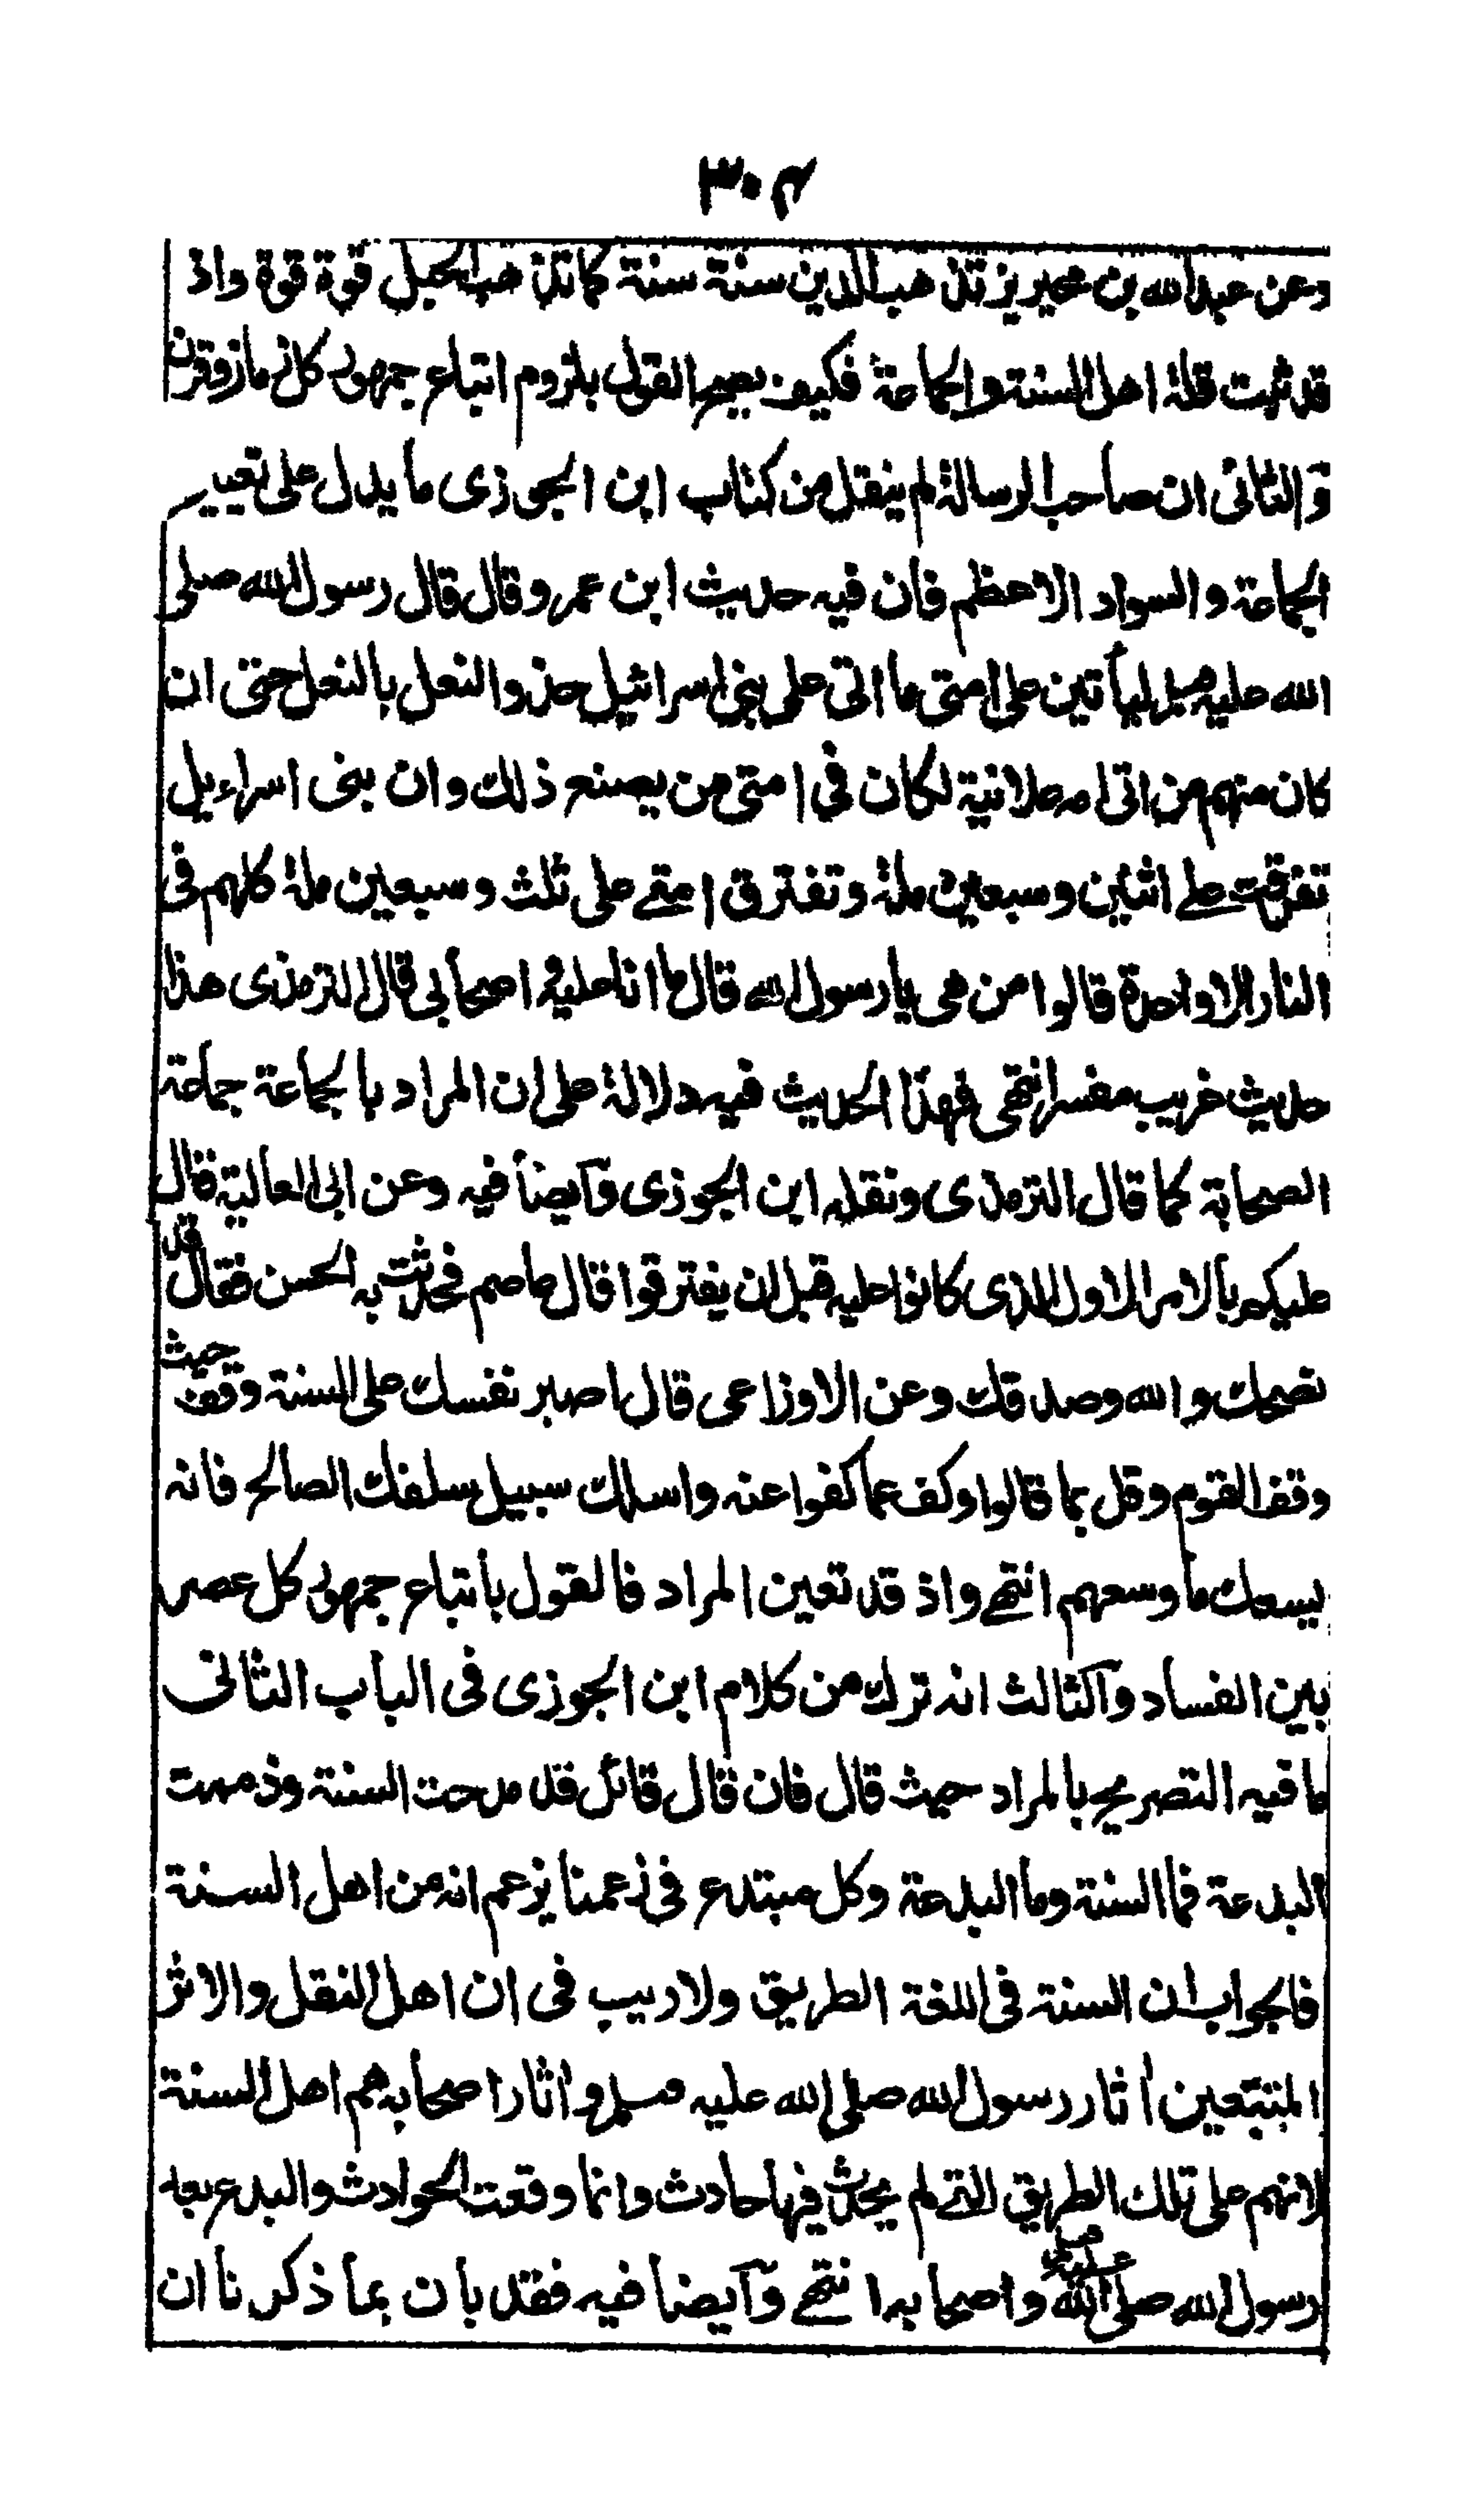 ٣٠٢
وعن عبد الله بن محيريز تذهب الدين سنة سنة كما تذهب الحبل قوة قوة واذ
قد ثبت قلة اهل السنة والجماعة فكيف يصح القول بلزوم اتباع جمهور كل
والثانى ان صاحب الرسالة لم ينقل من كتاب ابن الجوزى ما يدل على تعيير
الجماعة والسواد الاعظم فان فيه حديث ابن عمر وقال قال رسول الله صلى
الله عليه وسلم ليأتين على امتى ما اتى على بنى اسرائيل حذو النعل بالنعل حتى ان
كان منهم من اتى امه علانية لكان فى امتى من يصنع ذلك وان بنى اسراءيل
تفرقت على اثنين وسبعين ملة وتفترق امتے على ثلث وسبعين ملة كلهم فى
النار الا واحدة قالوا من هى يا رسول الله قال ما انا عليه و اصحابى قال الترمذى هذا
حديث غريب مفسر انتهى فهذا الحديث فيه دلالة على ان المراد بالجماعة جماعة
الصحابة كما قال الترمذى ونقله ابن الجوزى وآيضا فيه وعن ابى العالية قال
عليكم بالامر الاول الذى كانوا عليه قبل ان يفترقوا قال عاصم فحدثت به الحسن فقال قد
نصحك والله وصدقك وعن الاوزاعى قال اصبر نفسك على السنة وقف حيث
وقف القوم وقل بما قالوا وكف عما كفوا عنه واسلك سبيل سلفك الصالح فانه
يسعك ما وسعهم انتهے واذ قد تعين المراد فالقول بأتباع جمهور كل عصر
بين الفساد وآلثالث انه ترك من كلام ابن الجوزى فى الباب الثانى
ما فيه التصريح بالمراد حيث قال فان قال قائل قد مدحت السنة وذممت
البدعة فما السنة وما البدعة وكل مبتدع فى زعمنا يزعم انه من اهل السنة
فالجواب ان السنة فى اللغة الطريق ولا ريب فى ان اهل النقل والاثر
المتبعين اثار رسول الله صلى الله عليه وسلم و اثار اصحابه هم اهل السنة
لانهم على تلك الطريق التے لم يحدث فيها حادث وانما وقعت الحوادث والبدع بعد
رسول الله صلى الله عليه وسلم واصحابه انتهے وآيضا فيه فقد بان بما ذكرنا ان